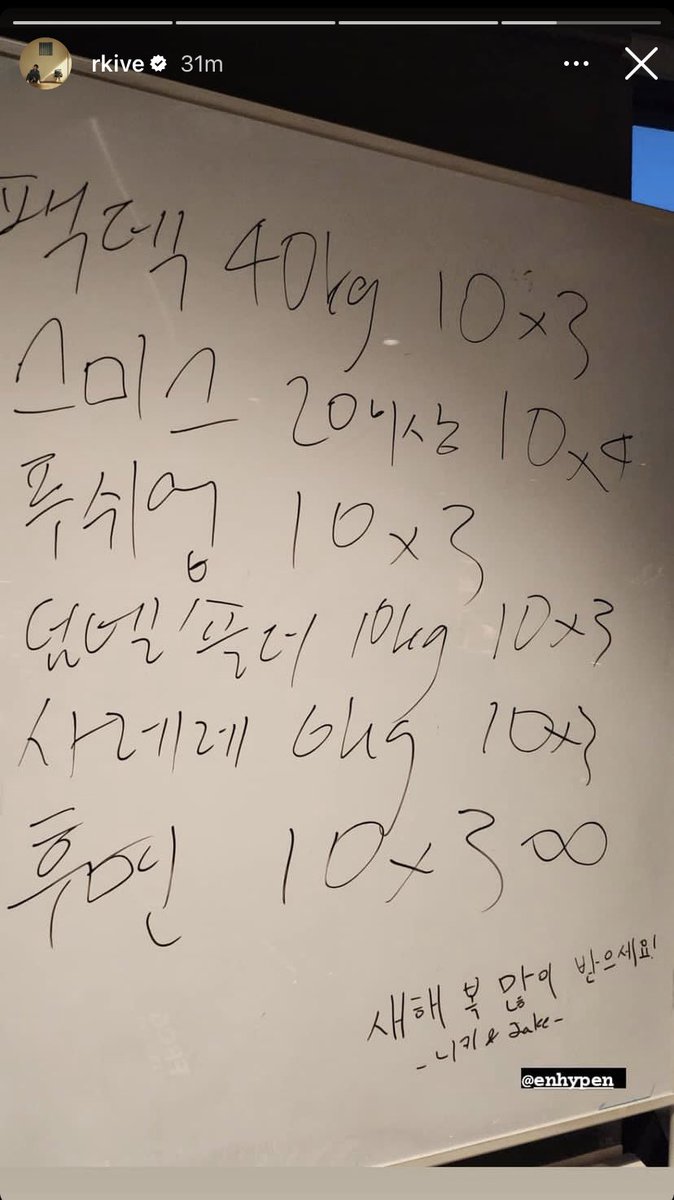 rkive 31m
팩덱 40kg 10x3
스미스 20이상 10x4
푸쉬업 10x3
덤벨숄더 10kg 10x3
사레레 6kg 10x3
후면 10x3 ∞
새해 복 많이 받으세요!
-니키 & Jake-
@enhypen